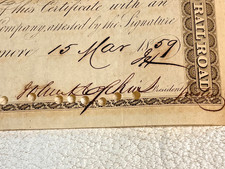 this Certificate with an
Company, attested by the Signature
more 15 Mar 1859
President
RAILROAD